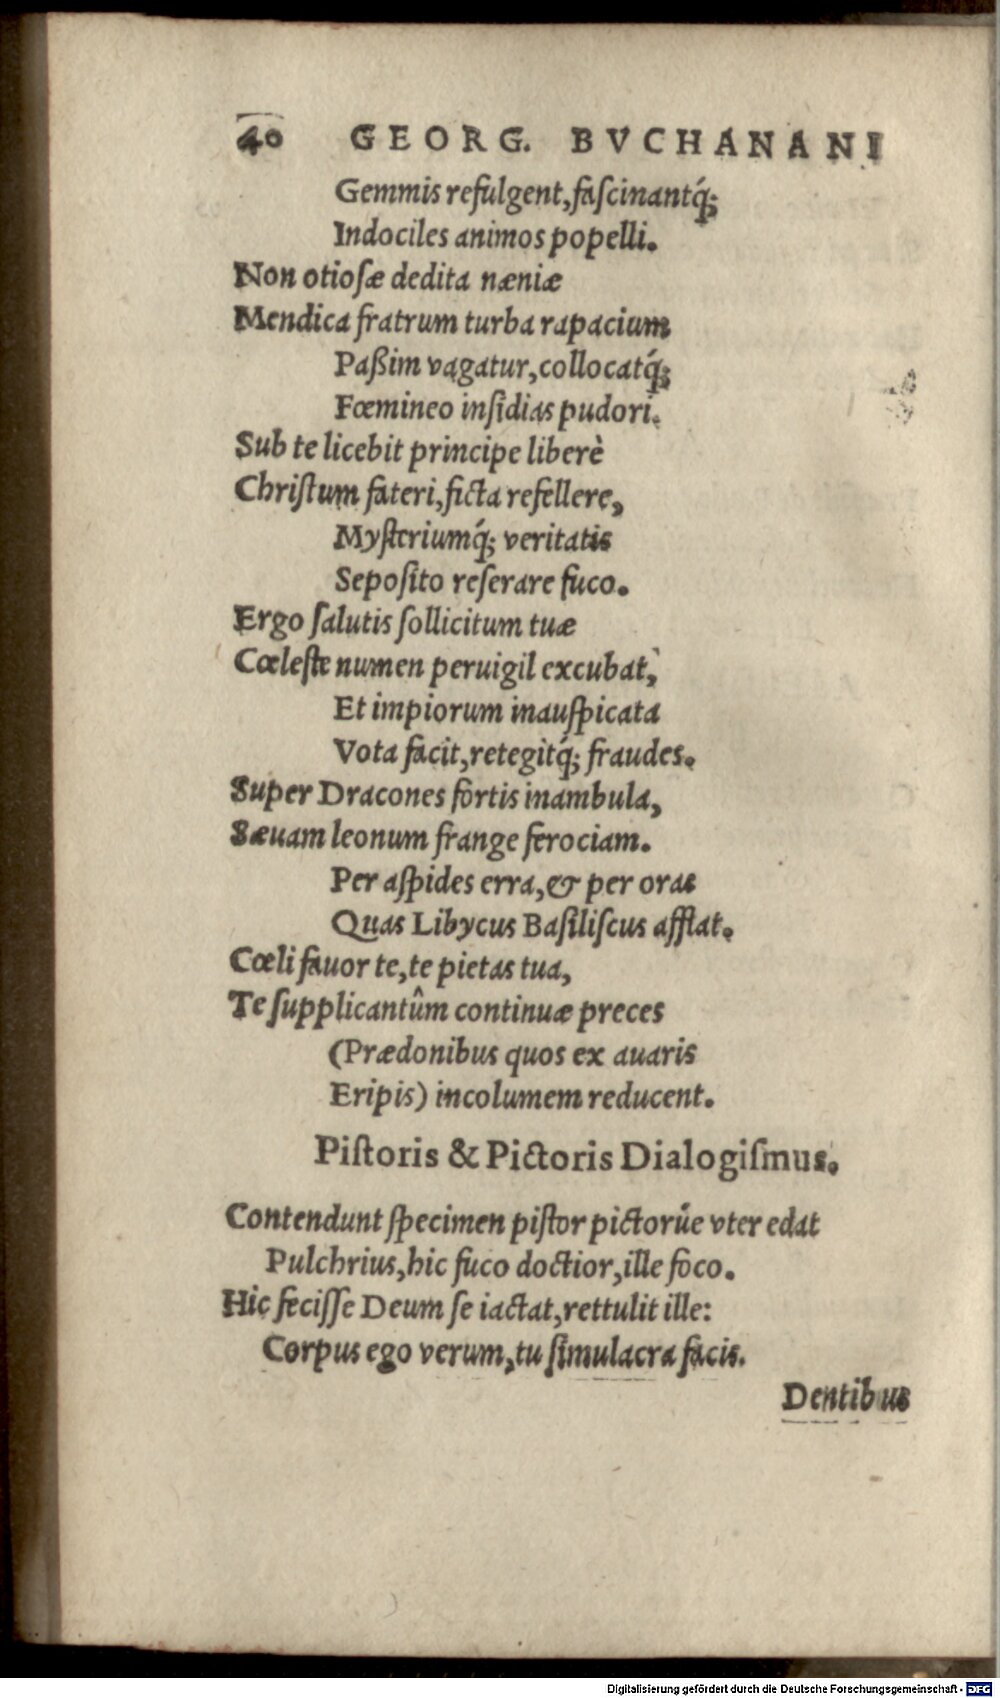 40 GEORG. BVCHANANI
Gemmis refulgent, faſcinantq́;
Indociles animos popelli.
Non otioſæ dedita næniæ
Mendica fratrum turba rapacium
Paßim vagatur, collocatq́;
Fœmineo inſidias pudori.
Sub te licebit principe liberè
Chriſtum fateri, ficta refellere,
Myſteriumq́; veritatis
Sepoſito reſerare fuco.
Ergo ſalutis ſollicitum tuæ
Cœleſte numen peruigil excubat,
Et impiorum inauſpicata
Vota facit, retegitq́; fraudes.
Super Dracones fortis inambula,
Sæuam leonum frange ferociam.
Per aſpides erra, & per oras
Quas Libycus Baſiliſcus afflat.
Cœli fauor te, te pietas tua,
Te ſupplicantûm continuæ preces
(Prædonibus quos ex auaris
Eripis) incolumem reducent.
Piſtoris & Pictoris Dialogiſmus.
Contendunt ſpecimen piſtor pictorúe vter edat
Pulchrius, hic fuco doctior, ille foco.
Hic feciſſe Deum ſe iactat, rettulit ille:
Corpus ego verum, tu ſimulacra facis.
Dentibus
Digitalisierung gefördert durch die Deutsche Forschungsgemeinschaft - DFG